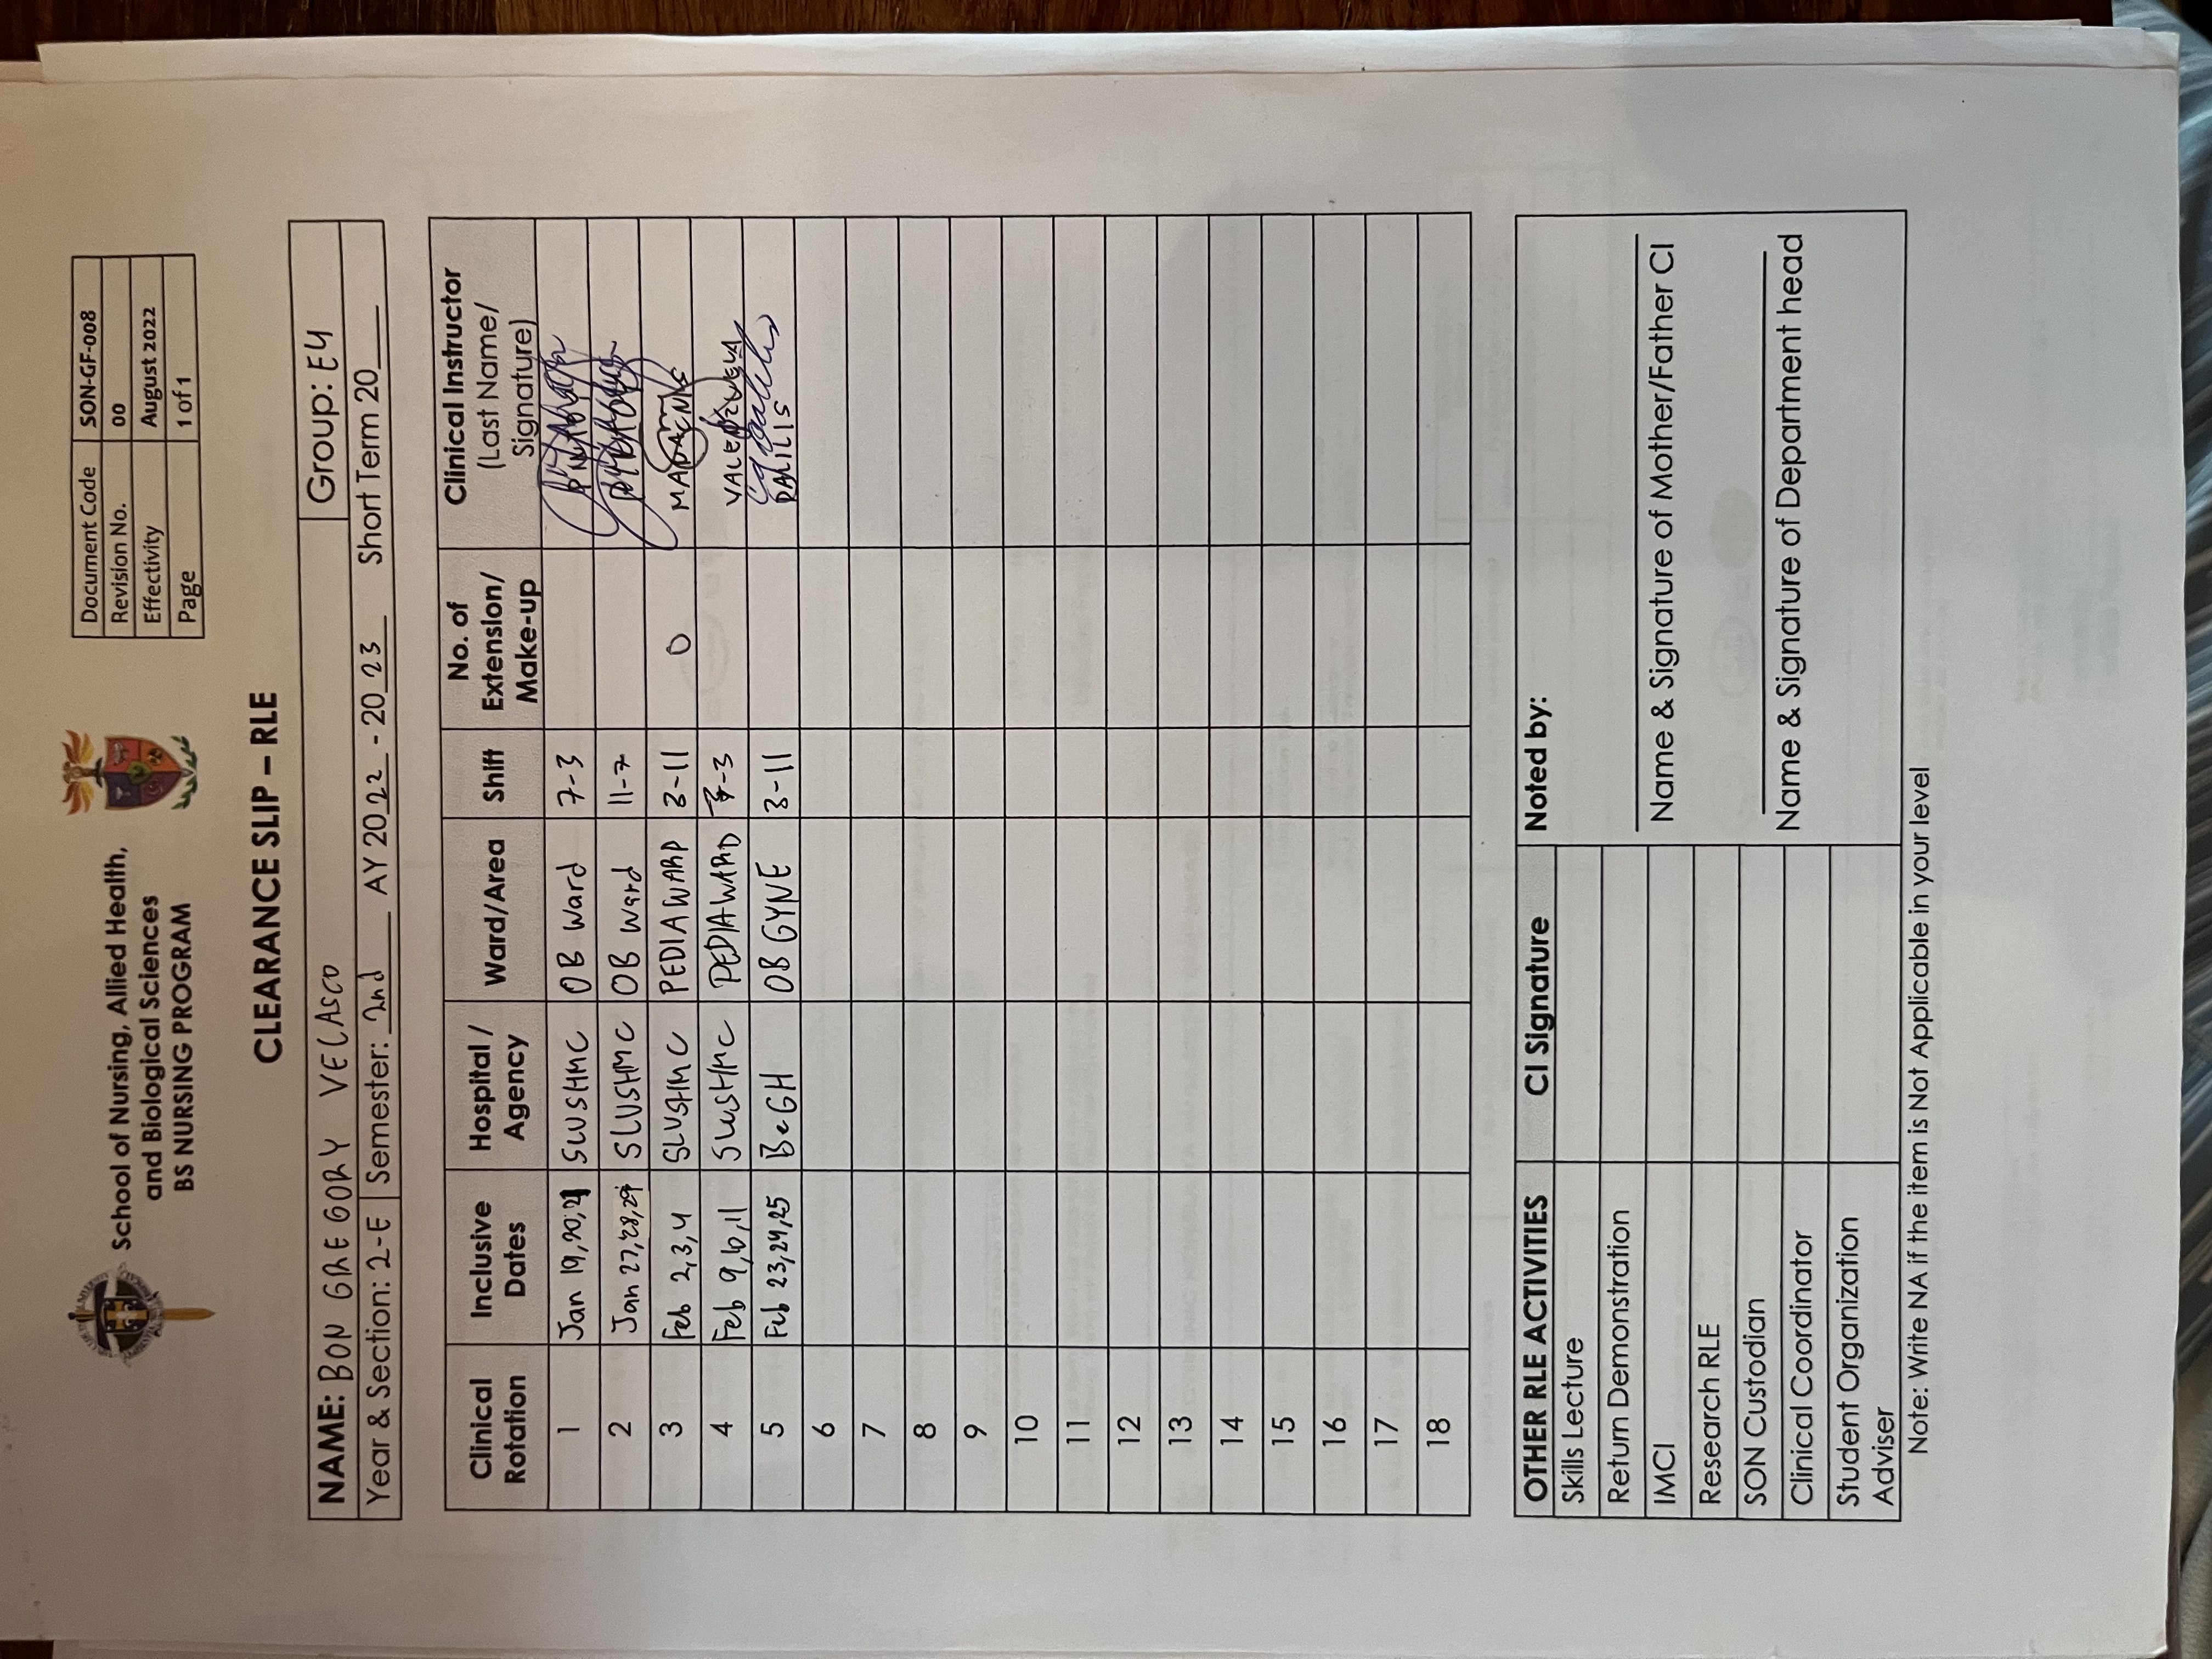 School of Nursing, Allied Health,
and Biological Sciences
BS NURSING PROGRAM
Document Code SON-GF-008
Revision No. 00
Effectivity August 2022
Page 1 of 1
CLEARANCE SLIP – RLE
NAME: BON GREGORY VELASCO Group: E4
Year & Section: 2-E Semester: 2nd AY 2022 - 2023 Short Term 20____
Clinical Rotation Inclusive Dates Hospital / Agency Ward/Area Shift No. of Extension/ Make-up Clinical Instructor (Last Name/ Signature)
1 Jan 19,20,21 SLUSHMC OB Ward 7-3
2 Jan 27,28,29 SLUSHMC OB Ward 11-7
3 Feb 2,3,4 SLUSHMC PEDIA WARD 3-11 0
4 Feb 9,10,11 SLUSHMC PEDIA WARD 7-3 VALENZUELA
5 Feb 23,24,25 BeGH OB GYNE 3-11 DALILIS
6
7
8
9
10
11
12
13
14
15
16
17
18
OTHER RLE ACTIVITIES CI Signature Noted by:
Skills Lecture
Return Demonstration
IMCI
Name & Signature of Mother/Father CI
Research RLE
SON Custodian
Clinical Coordinator
Name & Signature of Department head
Student Organization
Adviser
Note: Write NA if the item is Not Applicable in your level